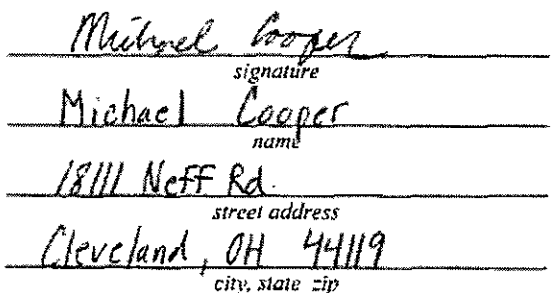 Michael Cooper
signature
Michael Cooper
name
18111 Neff Rd.
street address
Cleveland, OH 44119
city, state zip